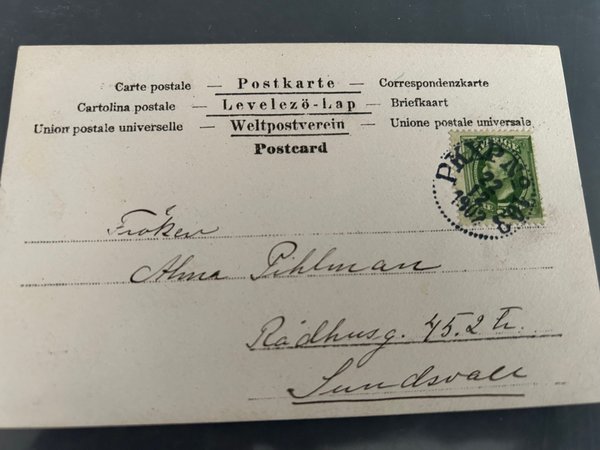 Carte postale — Postkarte — Correspondenzkarte
Cartolina postale — Levelező-Lap — Briefkaart
Union postale universelle — Weltpostverein — Unione postale universale
Postcard
PKXP No
22
1902
Fröken
Alma Pihlman
Rådhusg. 45. 2 tr.
Sundsvall